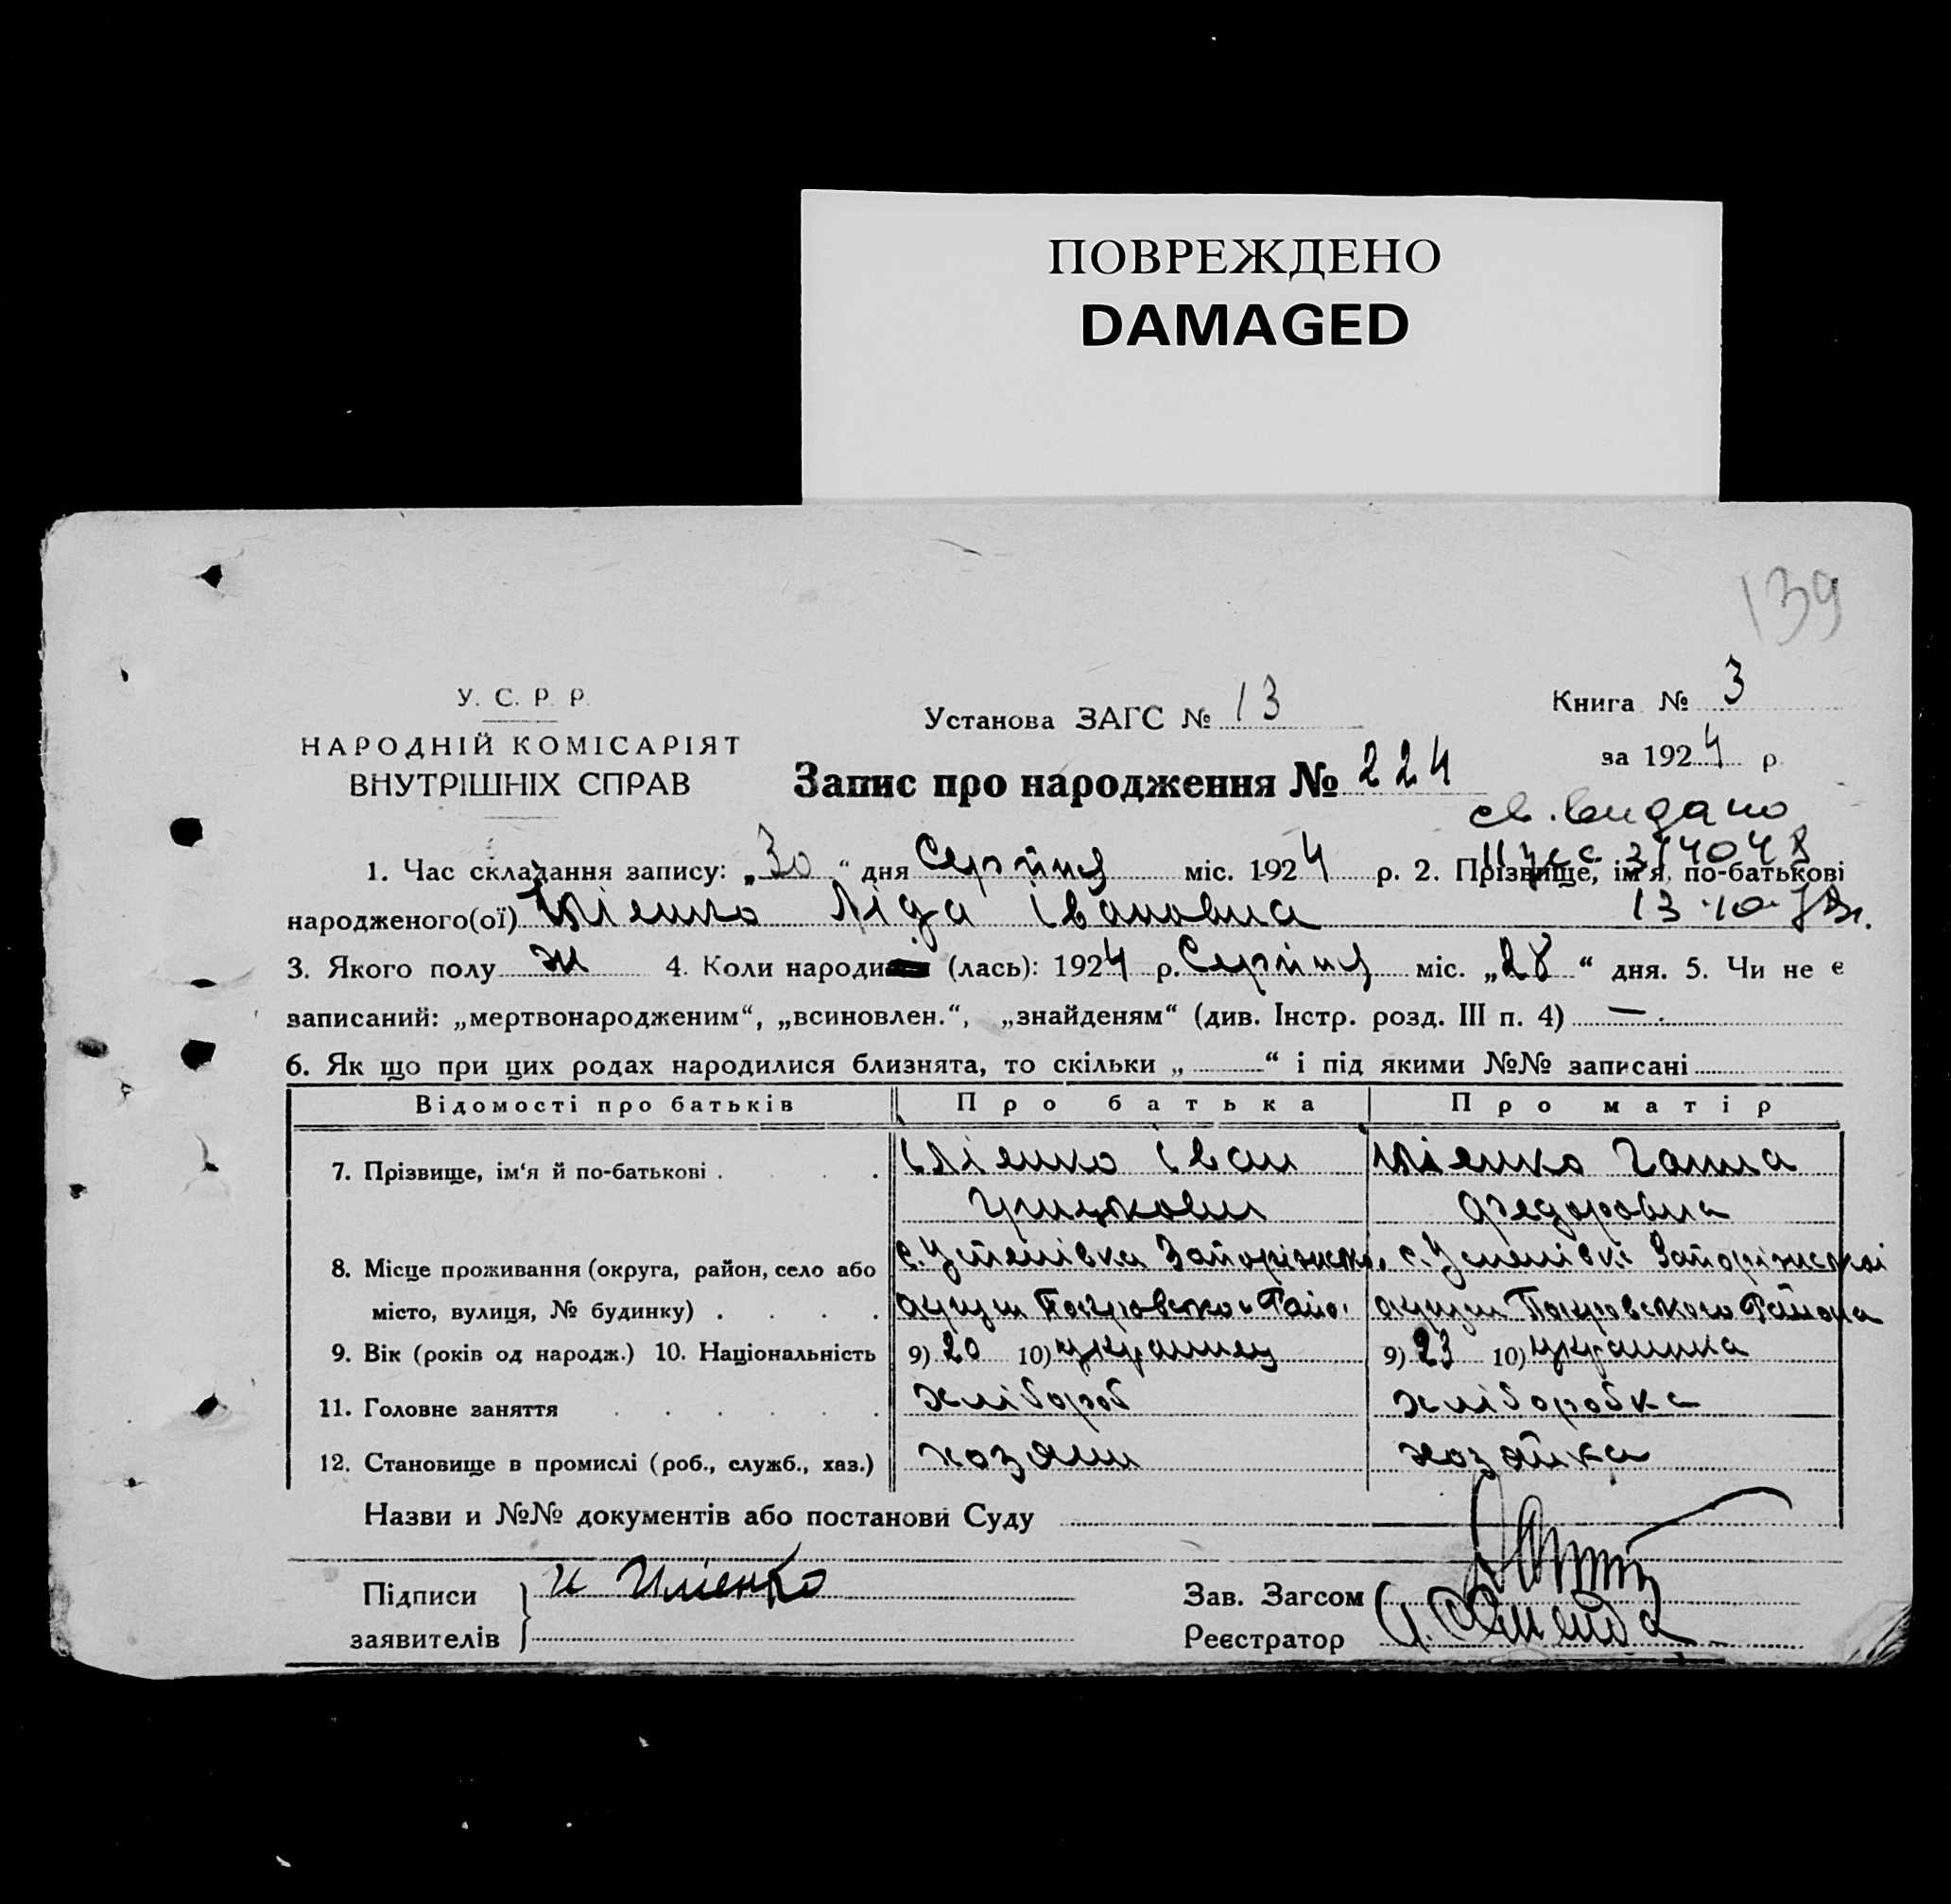 ПОВРЕЖДЕНО
DAMAGED
139
У. С. Р. Р.
НАРОДНІЙ КОМІСАРІЯТ
ВНУТРІШНІХ СПРАВ
Установа ЗАГС № 13
Книга № 3
за 1924 р.
Запис про народження № 224
св. видано
314048
1. Час складання запису: „30“ дня Серпня міс. 1924 р. 2. Прізвище, ім'я, по-батькові
народженого(ої) Ілієнко Ліда Івановна 13.10.
3. Якого полу ж 4. Коли народи (лась): 1924 р. Серпня міс. „28“ дня. 5. Чи не є
записаний: „мертвонародженим“, „всиновлен.“, „знайденям“ (див. Інстр. розд. III п. 4) —
6. Як що при цих родах народилися близнята, то скільки „ “ і під якими №№ записані
Відомості про батьків Про батька Про матір
7. Прізвище, ім'я й по-батькові Ілієнко Іван Ілієнко Ганна
Грицькович Федоровна
8. Місце проживання (округа, район, село або с. Успенівка Запоріжсько, с. Успенівка Запоріжської
місто, вулиця, № будинку) округи Покровсько Райо. округи Покровського Района
9. Вік (років од народж.) 10. Національність 9) 20 10) українец 9) 23 10) українка
11. Головне заняття хлібороб хліборобка
12. Становище в промислі (роб., служб., хаз.) хозяин хозяйка
Назви и №№ документів або постанови Суду
Підписи И Илієнко
заявителів
Зав. Загсом
Реєстратор